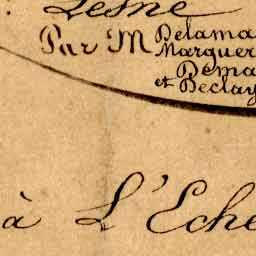 Lesne
Par M Delama
Marguer
Dema
et Declay
à L'Eche